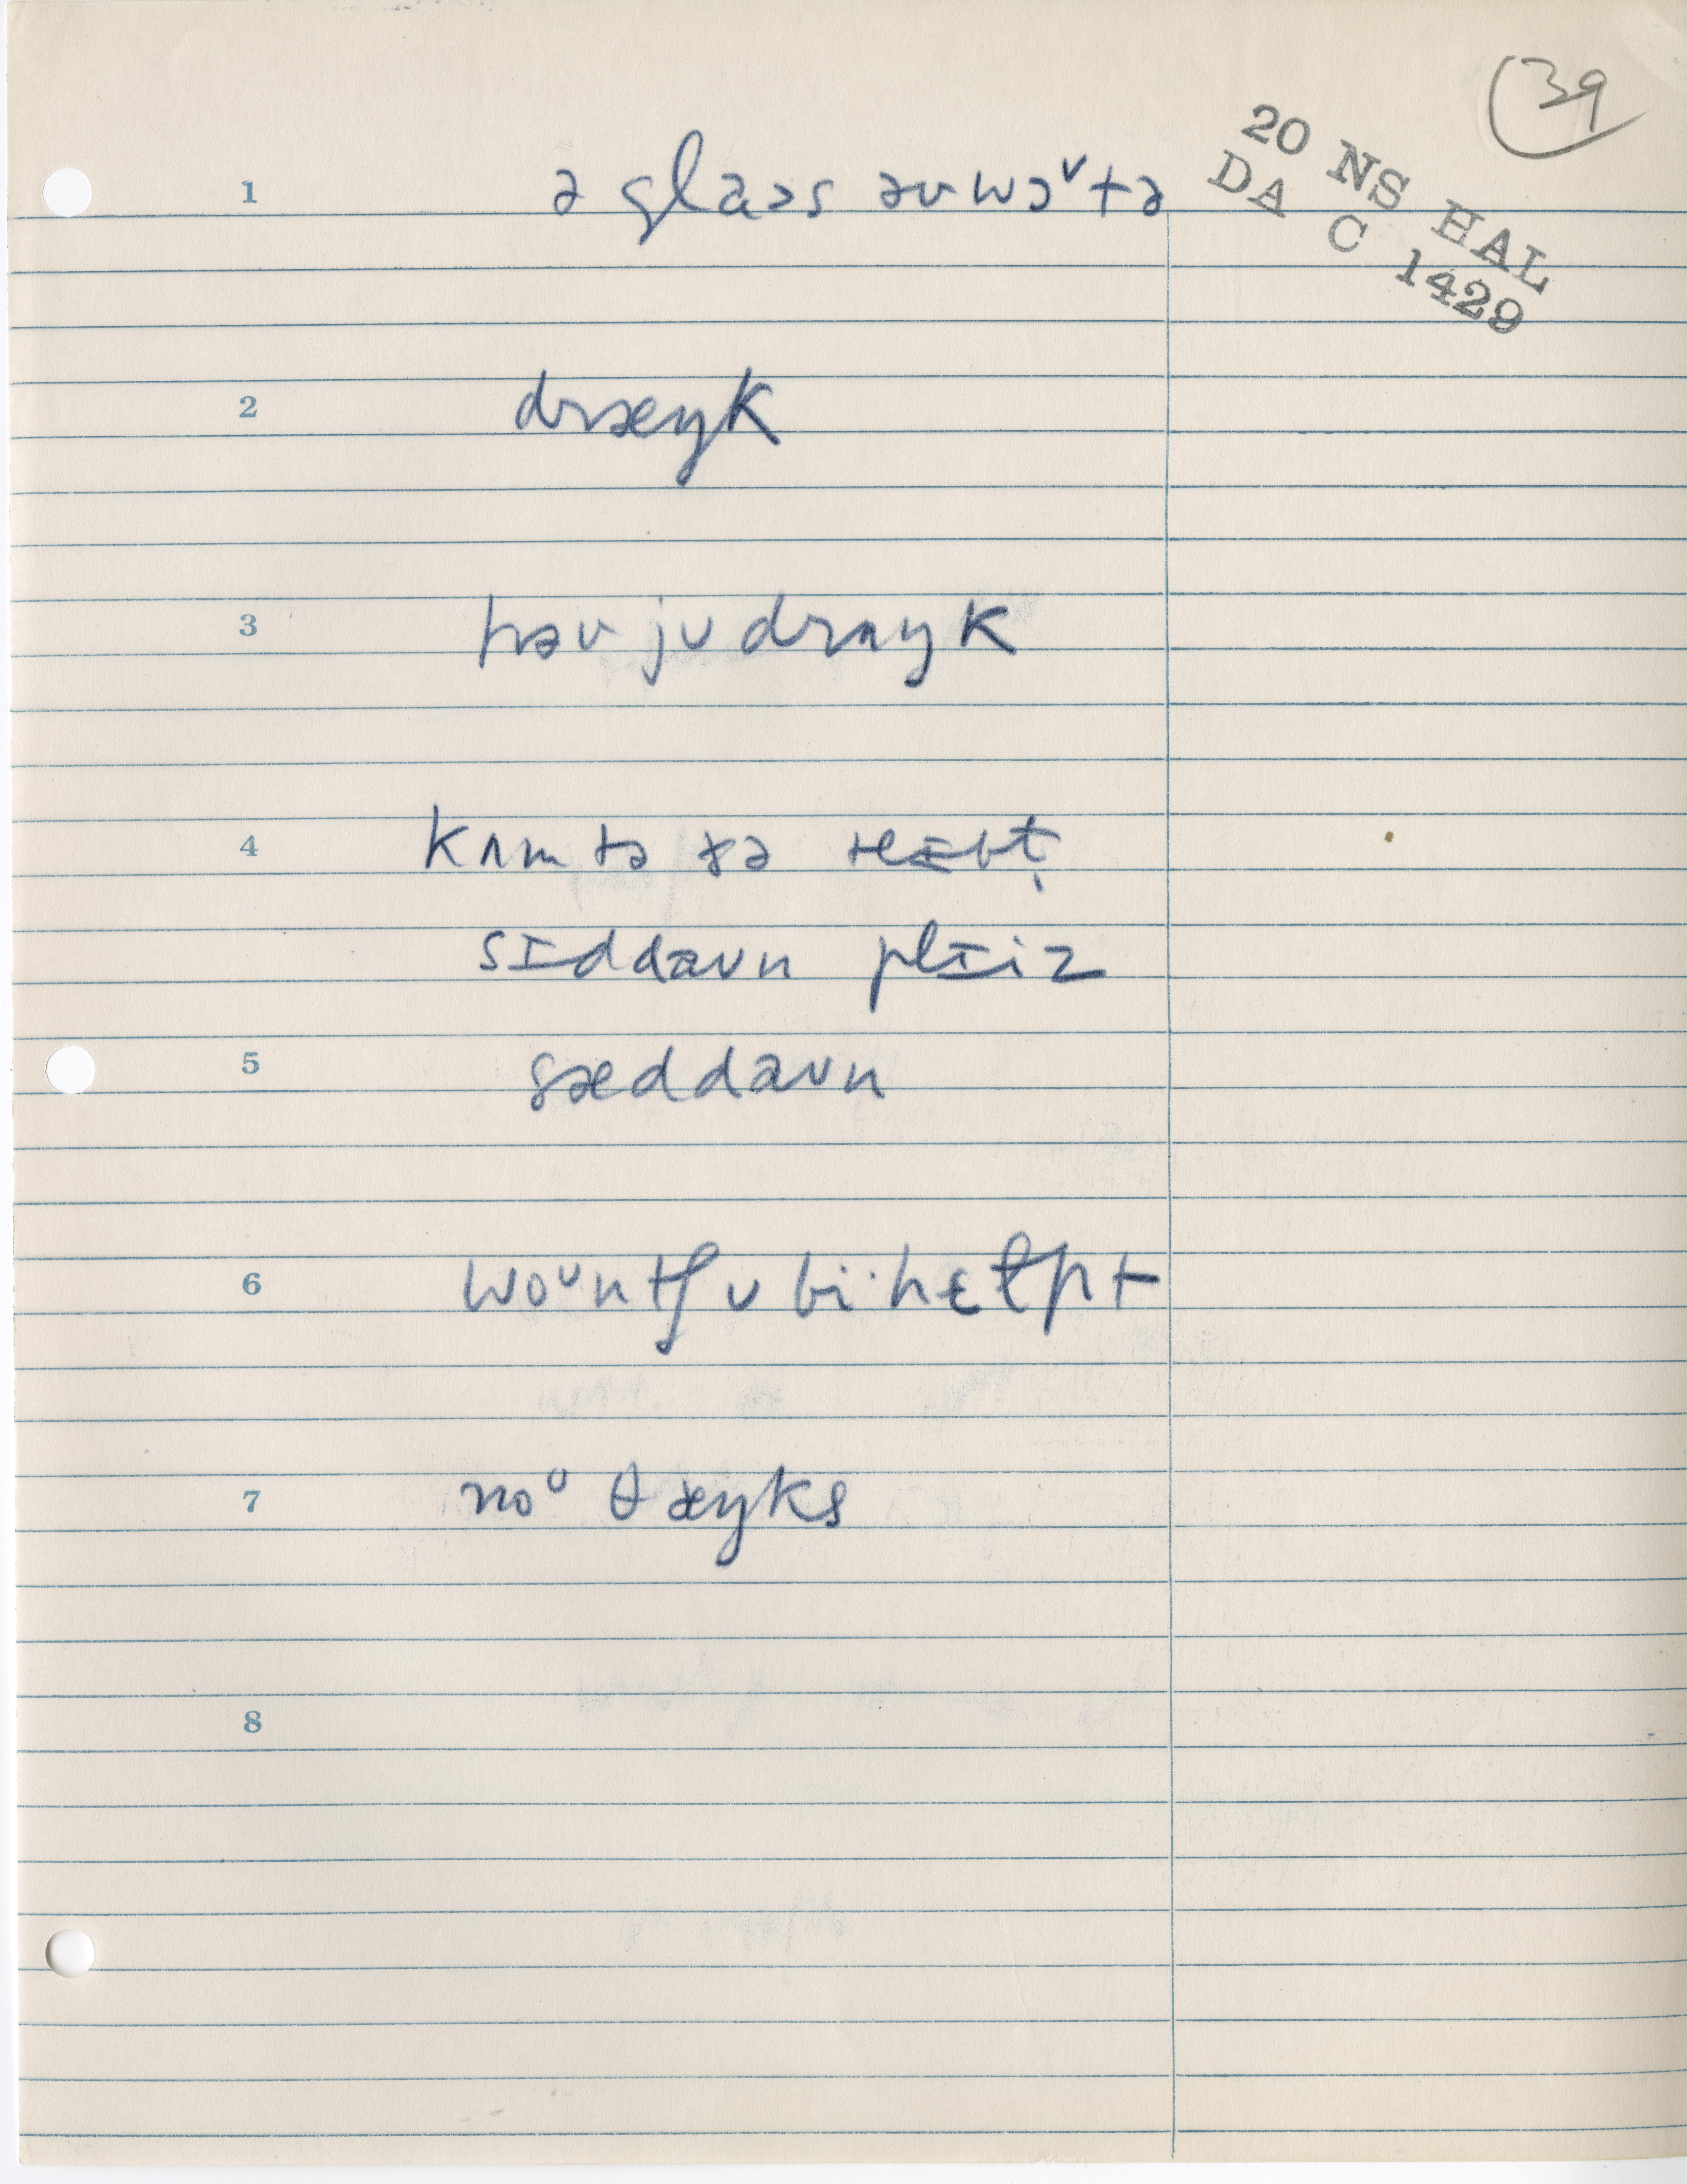 39
20 NS HAL
DA C 1429
1 ə glaəs əv wɔᵛtə
2 dræŋk
3 həv ju drʌŋk
4 kʌm tə ðə
sɪddaun plɪiz
5 sæddaun
6 woᶸntʃu bi· hɛɫpt
7 noᶸ θæŋks
8